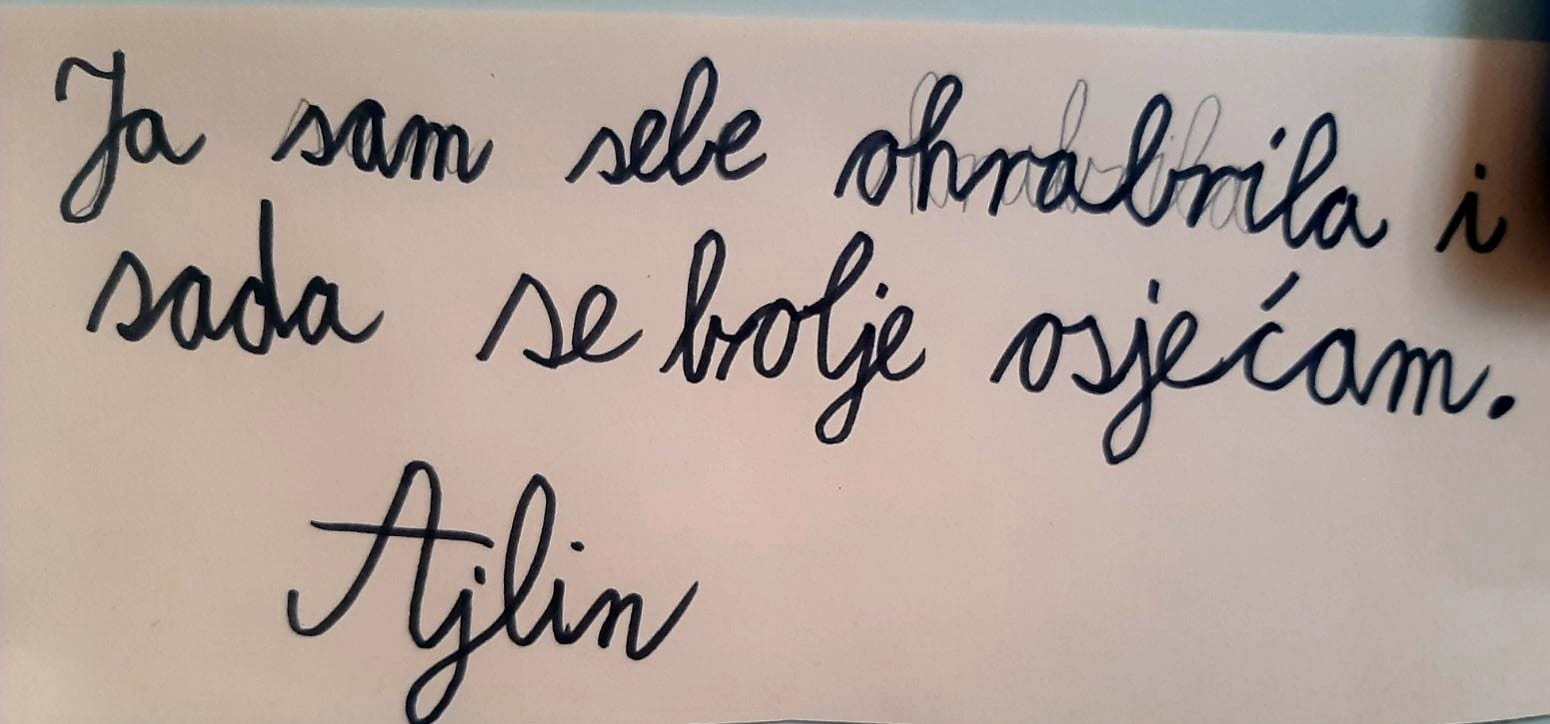 Ja sam sebe ohrabrila i
sada se bolje osjećam.
Ajlin